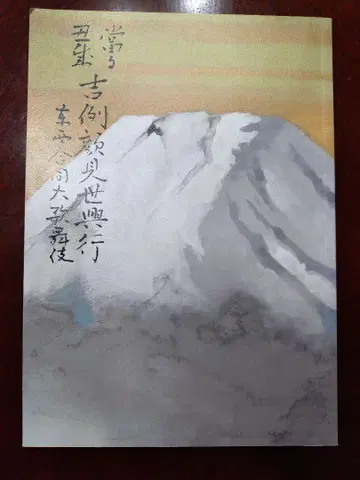 當る
丑歳
吉例顔見世興行
東西合同大歌舞伎